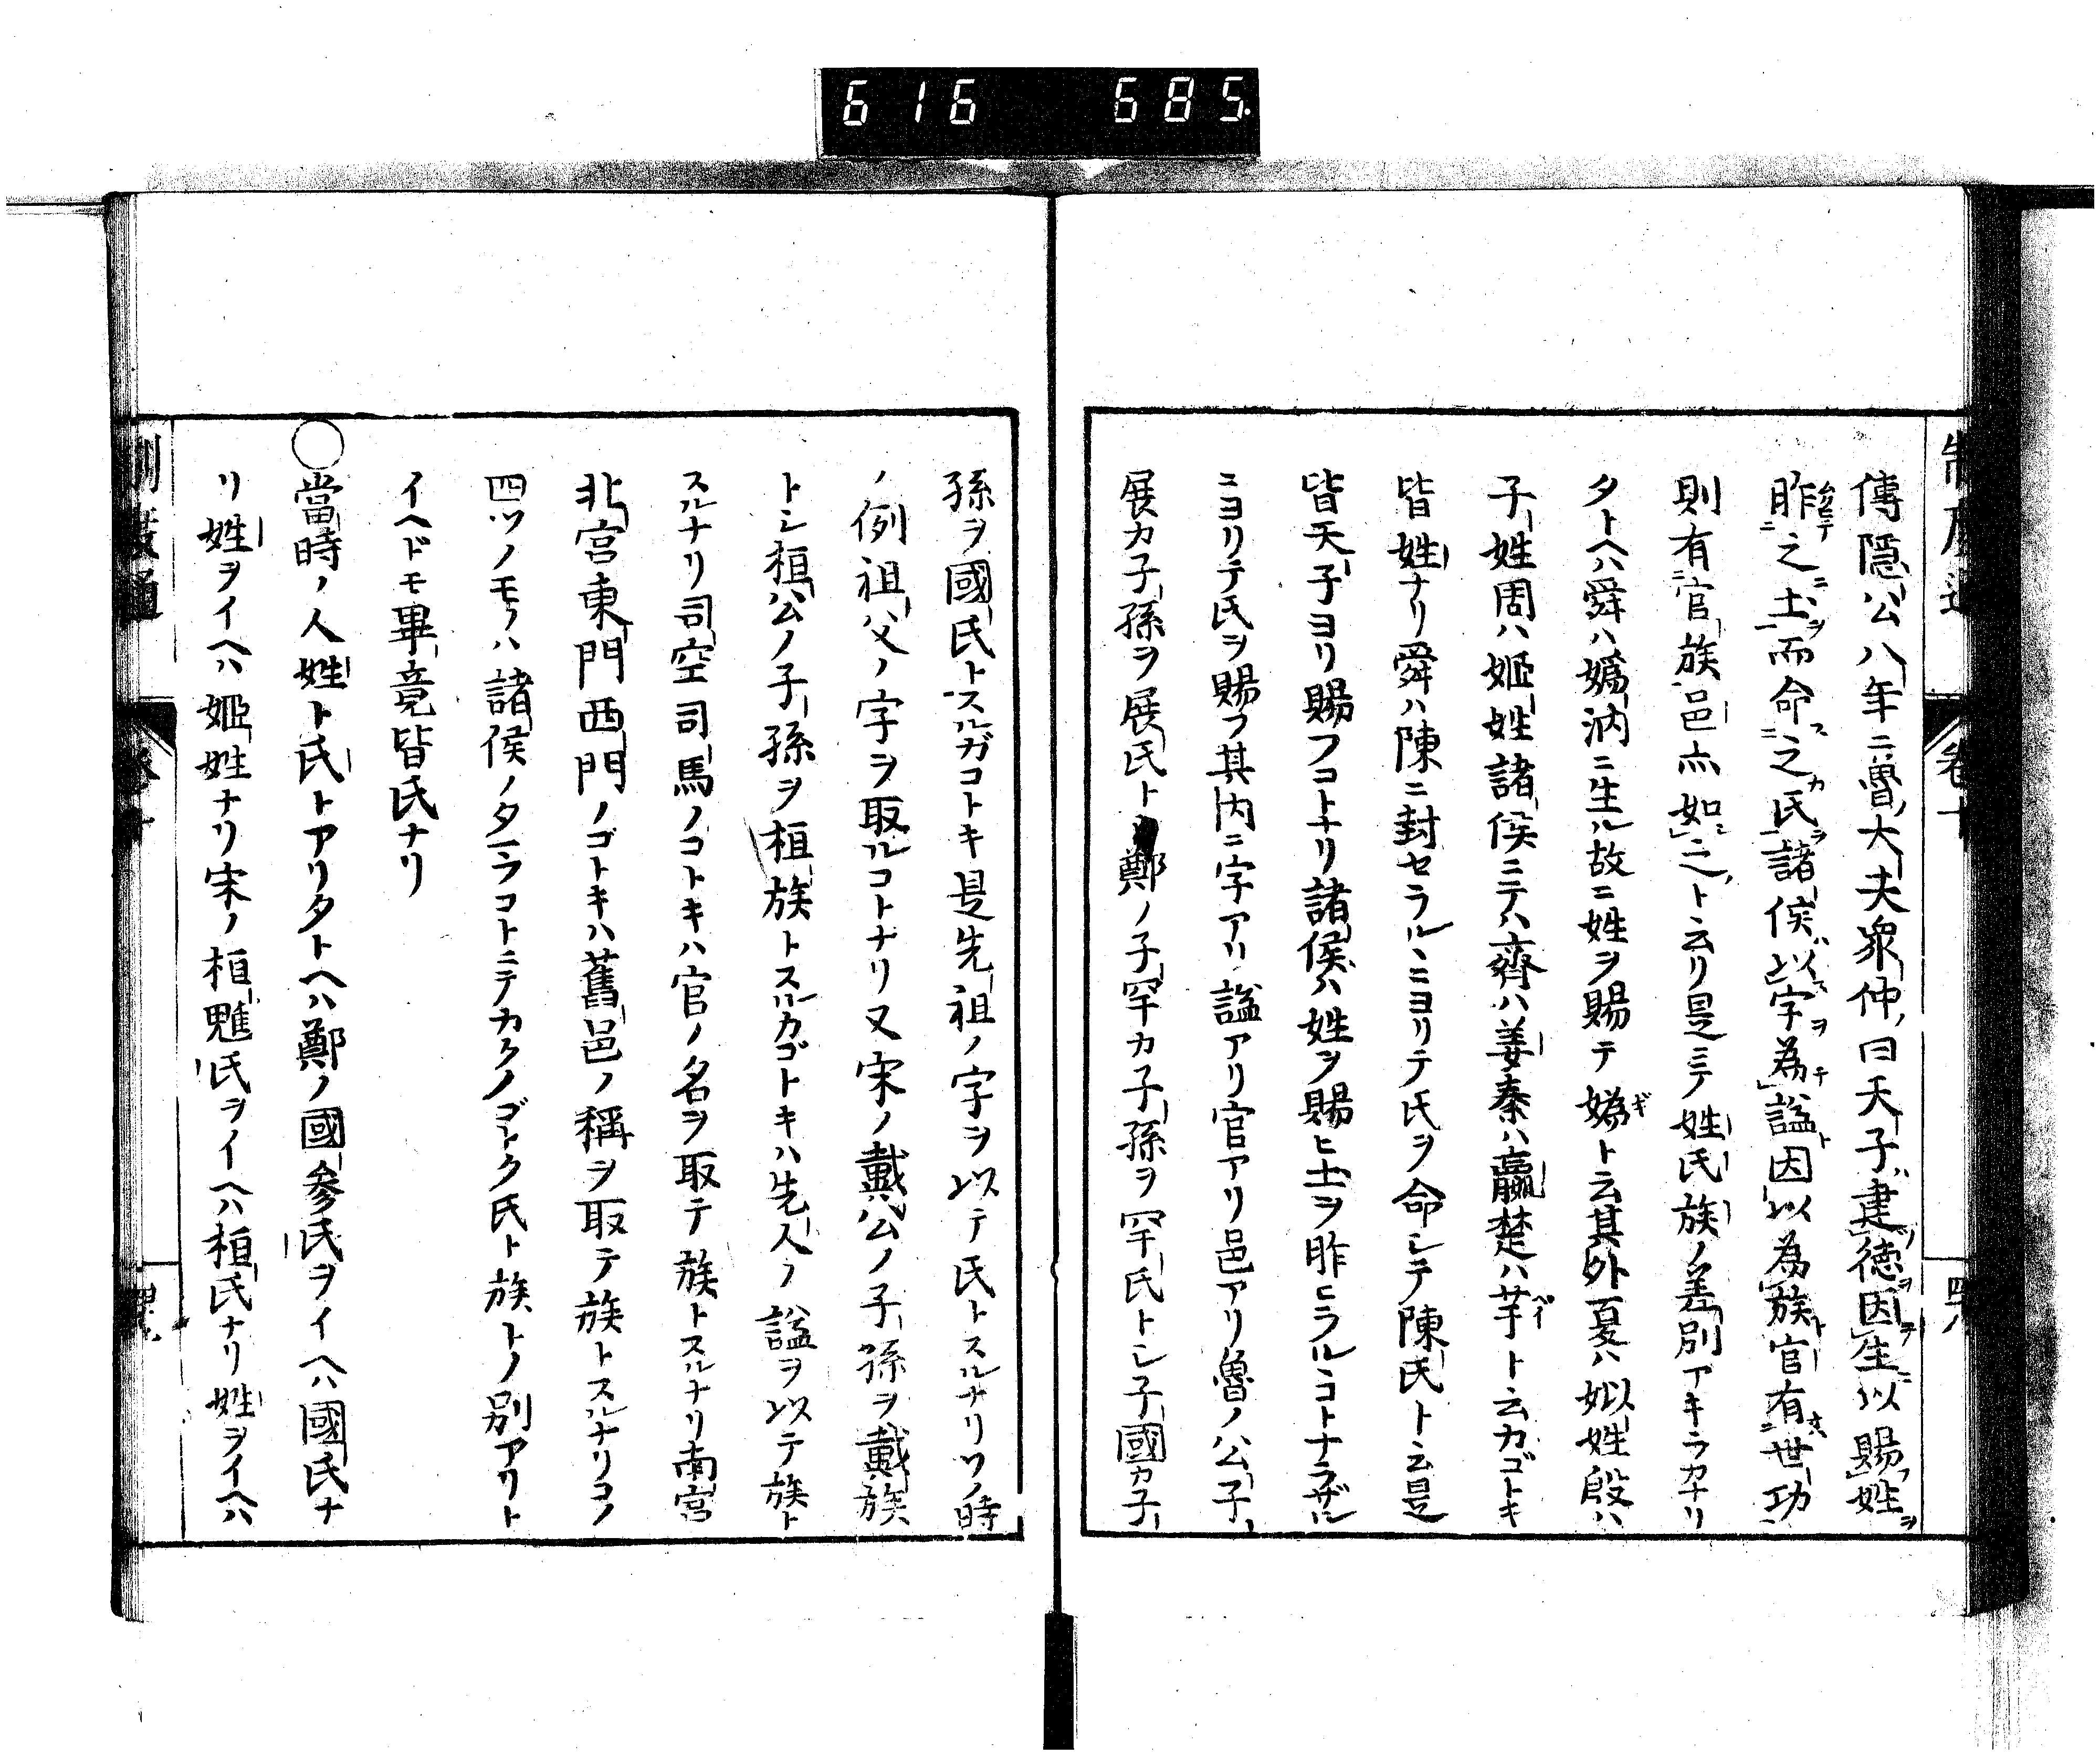 616 685
傳隱公八年ニ魯ノ大夫衆仲曰天子建德因生以賜姓
胙之土而命之氏諸侯以字為謚因以為族官有世功
則有官族邑亦如之ト云リ是ニテ姓氏族ノ差別アキラカナリ
タトヘハ舜ハ嬀汭ニ生ル故ニ姓ヲ賜テ嬀ト云其外夏ハ姒姓殷ハ
子姓周ハ姬姓諸侯ニテハ齊ハ姜秦ハ嬴楚ハ芈ト云カゴトキ
皆姓ナリ舜ハ陳ニ封セラルヽニヨリテ氏ヲ命シテ陳氏ト云是
皆天子ヨリ賜フコトナリ諸侯ハ姓ヲ賜ヒ土ヲ胙ヒラルヽコトナラザル
ニヨリテ氏ヲ賜フ其内ニ字アリ謚アリ官アリ邑アリ魯ノ公子
展カ子孫ヲ展氏ト鄭ノ子罕カ子孫ヲ罕氏トシ子國カ子
孫ヲ國氏トスルガコトキ是先祖ノ字ヲ以テ氏トスルナリソノ時
ノ例祖父ノ字ヲ取ルコトナリ又宋ノ戴公ノ子孫ヲ戴族
トシ桓公ノ子孫ヲ桓族トスルカゴトキハ先人ノ謚ヲ以テ族ト
スルナリ司空司馬ノコトキハ官ノ名ヲ取テ族トスルナリ南宮
北宮東門西門ノゴトキハ舊邑ノ稱ヲ取テ族トスルナリコノ
四ツノモノハ諸侯ノタマフコトニテカクノゴトク氏ト族トノ別アリト
イヘドモ畢竟皆氏ナリ
○當時ノ人姓ト氏トアリタトヘハ鄭ノ國參氏ヲイヘハ國氏ナ
リ姓ヲイヘハ姬姓ナリ宋ノ桓魋氏ヲイヘハ桓氏ナリ姓ヲイヘハ